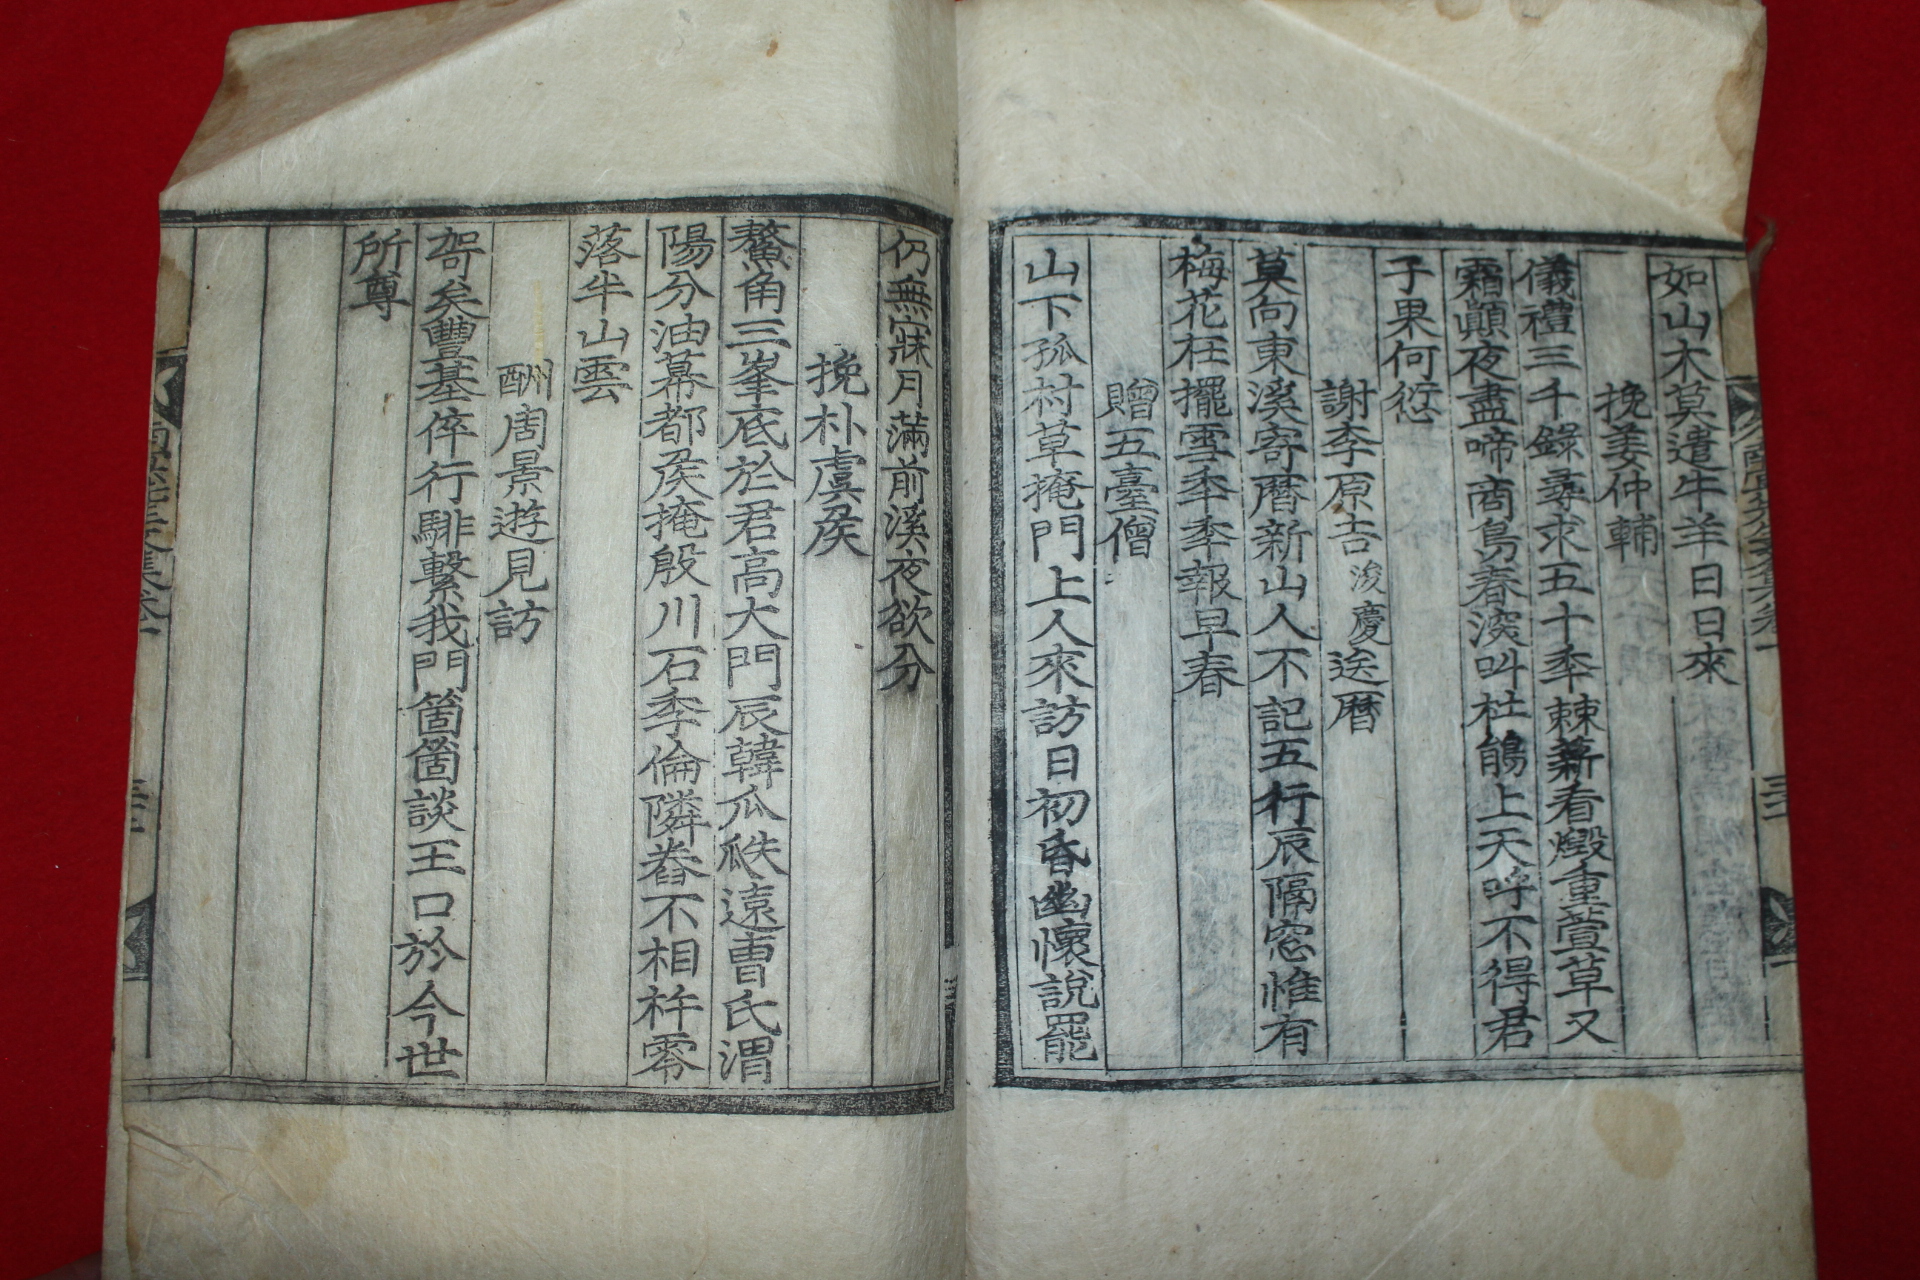 如山木莫遣牛羊日日來
挽姜仲輔
儀禮三千錄尋求五十年棘薪看燬重萱草又
霜顚夜盡啼商鳥春深叫杜鵑上天呼不得君
子果何愆
謝李原吉浚慶送曆
莫向東溪寄曆新山人不記五行辰隔窓惟有
梅花在擺雪年年報早春
贈五臺僧
山下孤村草掩門上人來訪日初昏幽懷說罷
仍無寐月滿前溪夜欲分
挽朴虞侯
鰲角三峯底於君高大門辰韓瓜瓞遠曹氏渭
陽分油幕都侯掩殷川石季倫隣舂不相杵零
落牛山雲
酬周景遊見訪
哿矣豐基倅行騑繫我門箇箇談王口於今世
所尊